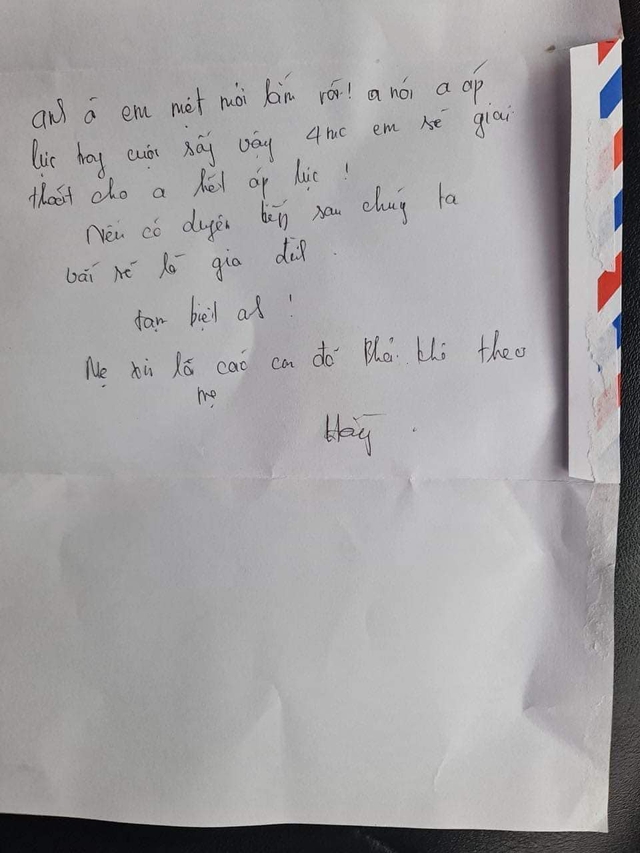 anh à em mệt mỏi lắm rồi! a nói a áp
lực hay cuộc sống vậy 4mc em sẽ giải
thoát cho a hết áp lực !
Nếu có duyên kiếp sau chúng ta
vẫn sẽ là gia đình .
tạm biệt anh !
Mẹ xin lỗi các con đã phải khổ theo
mẹ